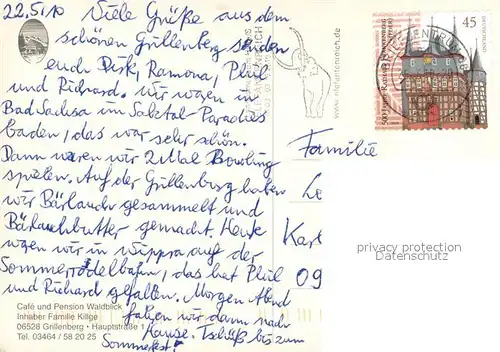 22.5.10 Viele Grüße aus dem
schönen Grillenberg senden
euch Dirk, Ramona, Phil
und Richard. Wir waren in
Bad Sachsa im Salztal-Paradies
baden, das war sehr schön.
Dann waren wir 2 Mal Bowling
spielen. Auf der Grillenburg haben
wir Bärlauch gesammelt und
Bärlauchbutter gemacht. Heute
waren wir in Wippra auf der
Sommerrodelbahn, das hat Phil
und Richard gefallen. Morgen Abend
fahren wir dann nach
Hause. Tschüß bis zum
Sommerfest!
Café und Pension Waldblick
Inhaber Familie Killge
06528 Grillenberg • Hauptstraße 1
Tel. 03464 / 58 20 25
www.mighuttenreich.de
45
DEUTSCHLAND
BRIEFZENTRUM
Familie
Le
Karl
09
privacy protection
Datenschutz